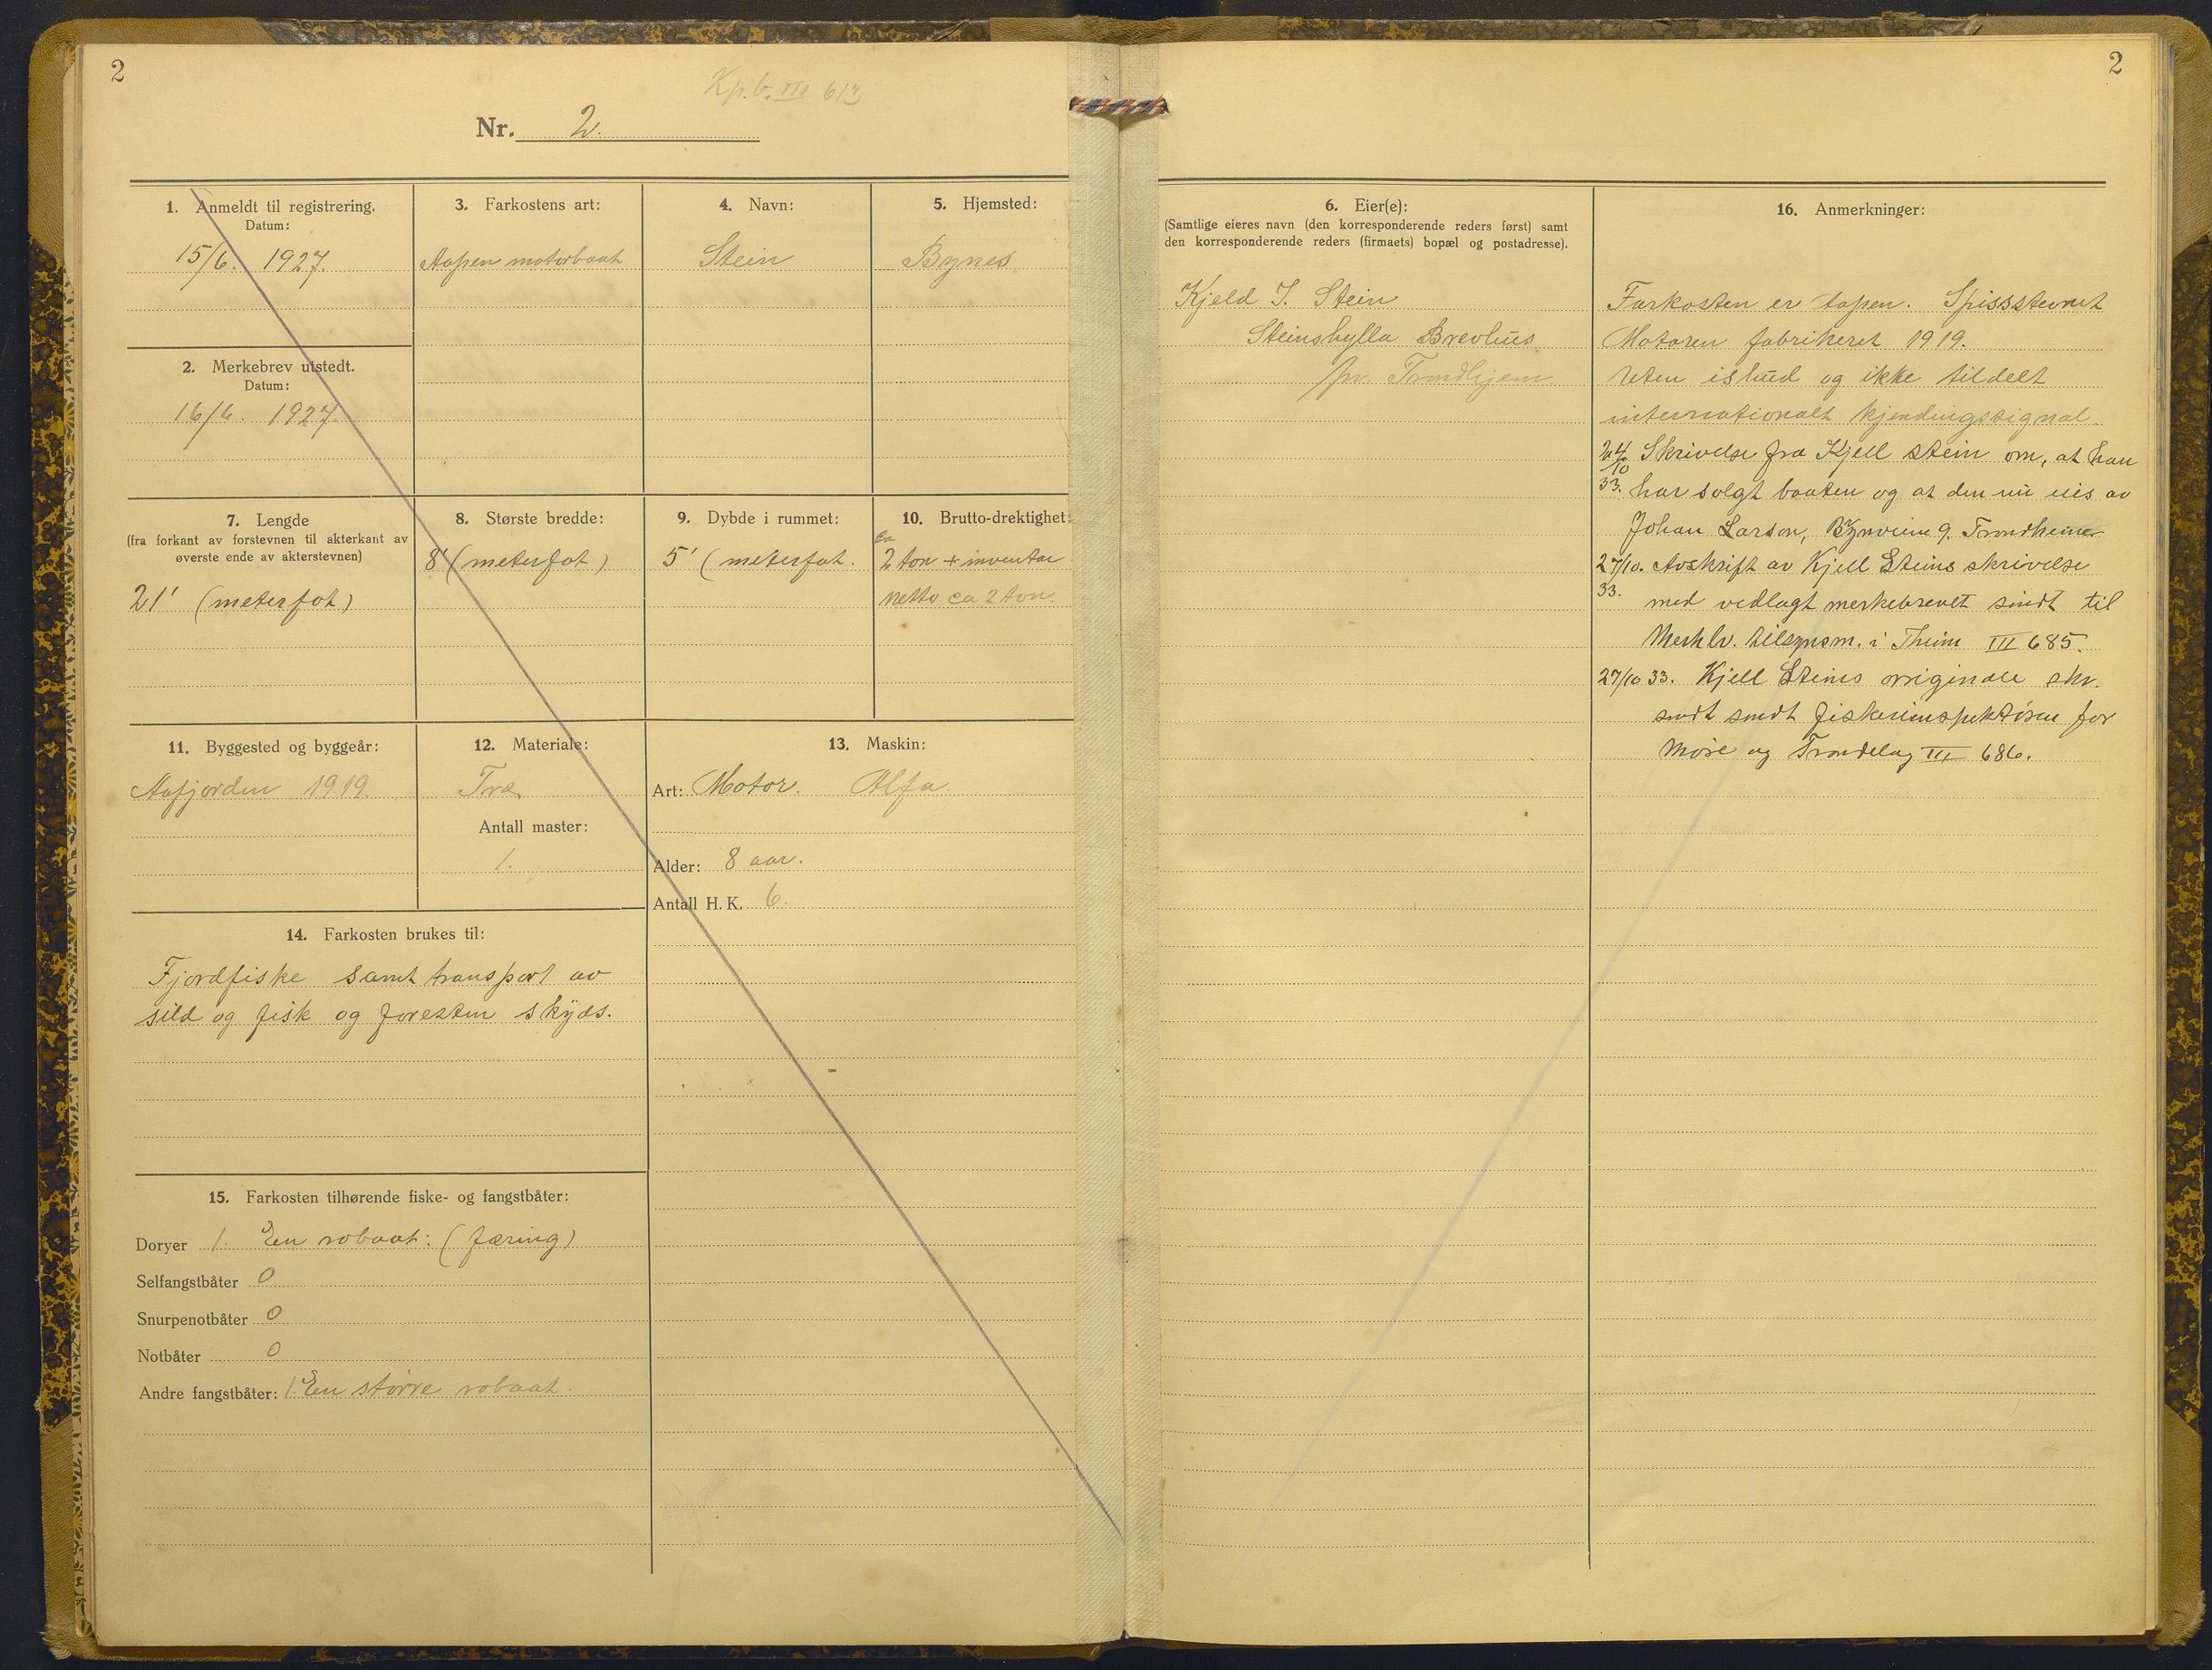 2
Kp.b. III 613
Nr. 2.
1. Anmeldt til registrering.
Datum:
15/6. 1927.
2. Merkebrev utstedt.
Datum:
16/6. 1927.
3. Farkostens art:
Aapen motorbaat
4. Navn:
Stein
5. Hjemsted:
Bynes
7. Lengde
(fra forkant av forstevnen til akterkant av
øverste ende av akterstevnen)
21' (meterfot)
8. Største bredde:
8' (meterfot)
9. Dybde i rummet:
5' (meterfot.
10. Brutto-drektighet:
ca
2 ton + inventar
netto ca 2 ton.
11. Byggested og byggeår:
Aafjorden 1919.
12. Materiale:
Træ
Antall master:
1.
13. Maskin:
Art: Motor. Alfa.
Alder: 8 aar.
Antall H.K. 6.
14. Farkosten brukes til:
Fjordfiske samt transport av
sild og fisk og foresten skyds.
15. Farkosten tilhørende fiske- og fangstbåter:
Doryer 1. En robaat: (færing)
Selfangstbåter 0
Snurpenotbåter 0
Notbåter 0
Andre fangstbåter: 1. En større robaat.
2
6. Eier(e):
(Samtlige eieres navn (den korresponderende reders først) samt
den korresponderende reders (firmaets) bopæl og postadresse).
Kjeld J. Stein
Steinshylla Brevhus
pr. Trondhjem
16. Anmerkninger:
Farkosten er aapen. Spissstevnet
Motoren fabrikert 1919.
Uten ishud og ikke tildelt
internationalt kjendingssignal.
24/10 33. Skrivelse fra Kjell Stein om, at han
har solgt baaten og at den nu eies av
Johan Larson, Bynveien 9. Trondheim
27/10. 33. Avskrift av Kjell Steins skrivelse
med vedlagt merkebrevet sendt til
Merkelv. tilsynsm. i Theim III 685.
27/10 33. Kjell Steins originale skr.
sendt sendt fiskeriinspektøren for
Møre og Trøndelag III 686.